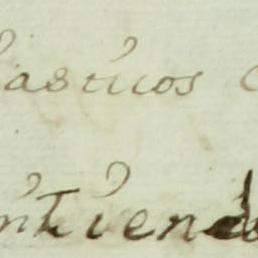 asticos
ntiend